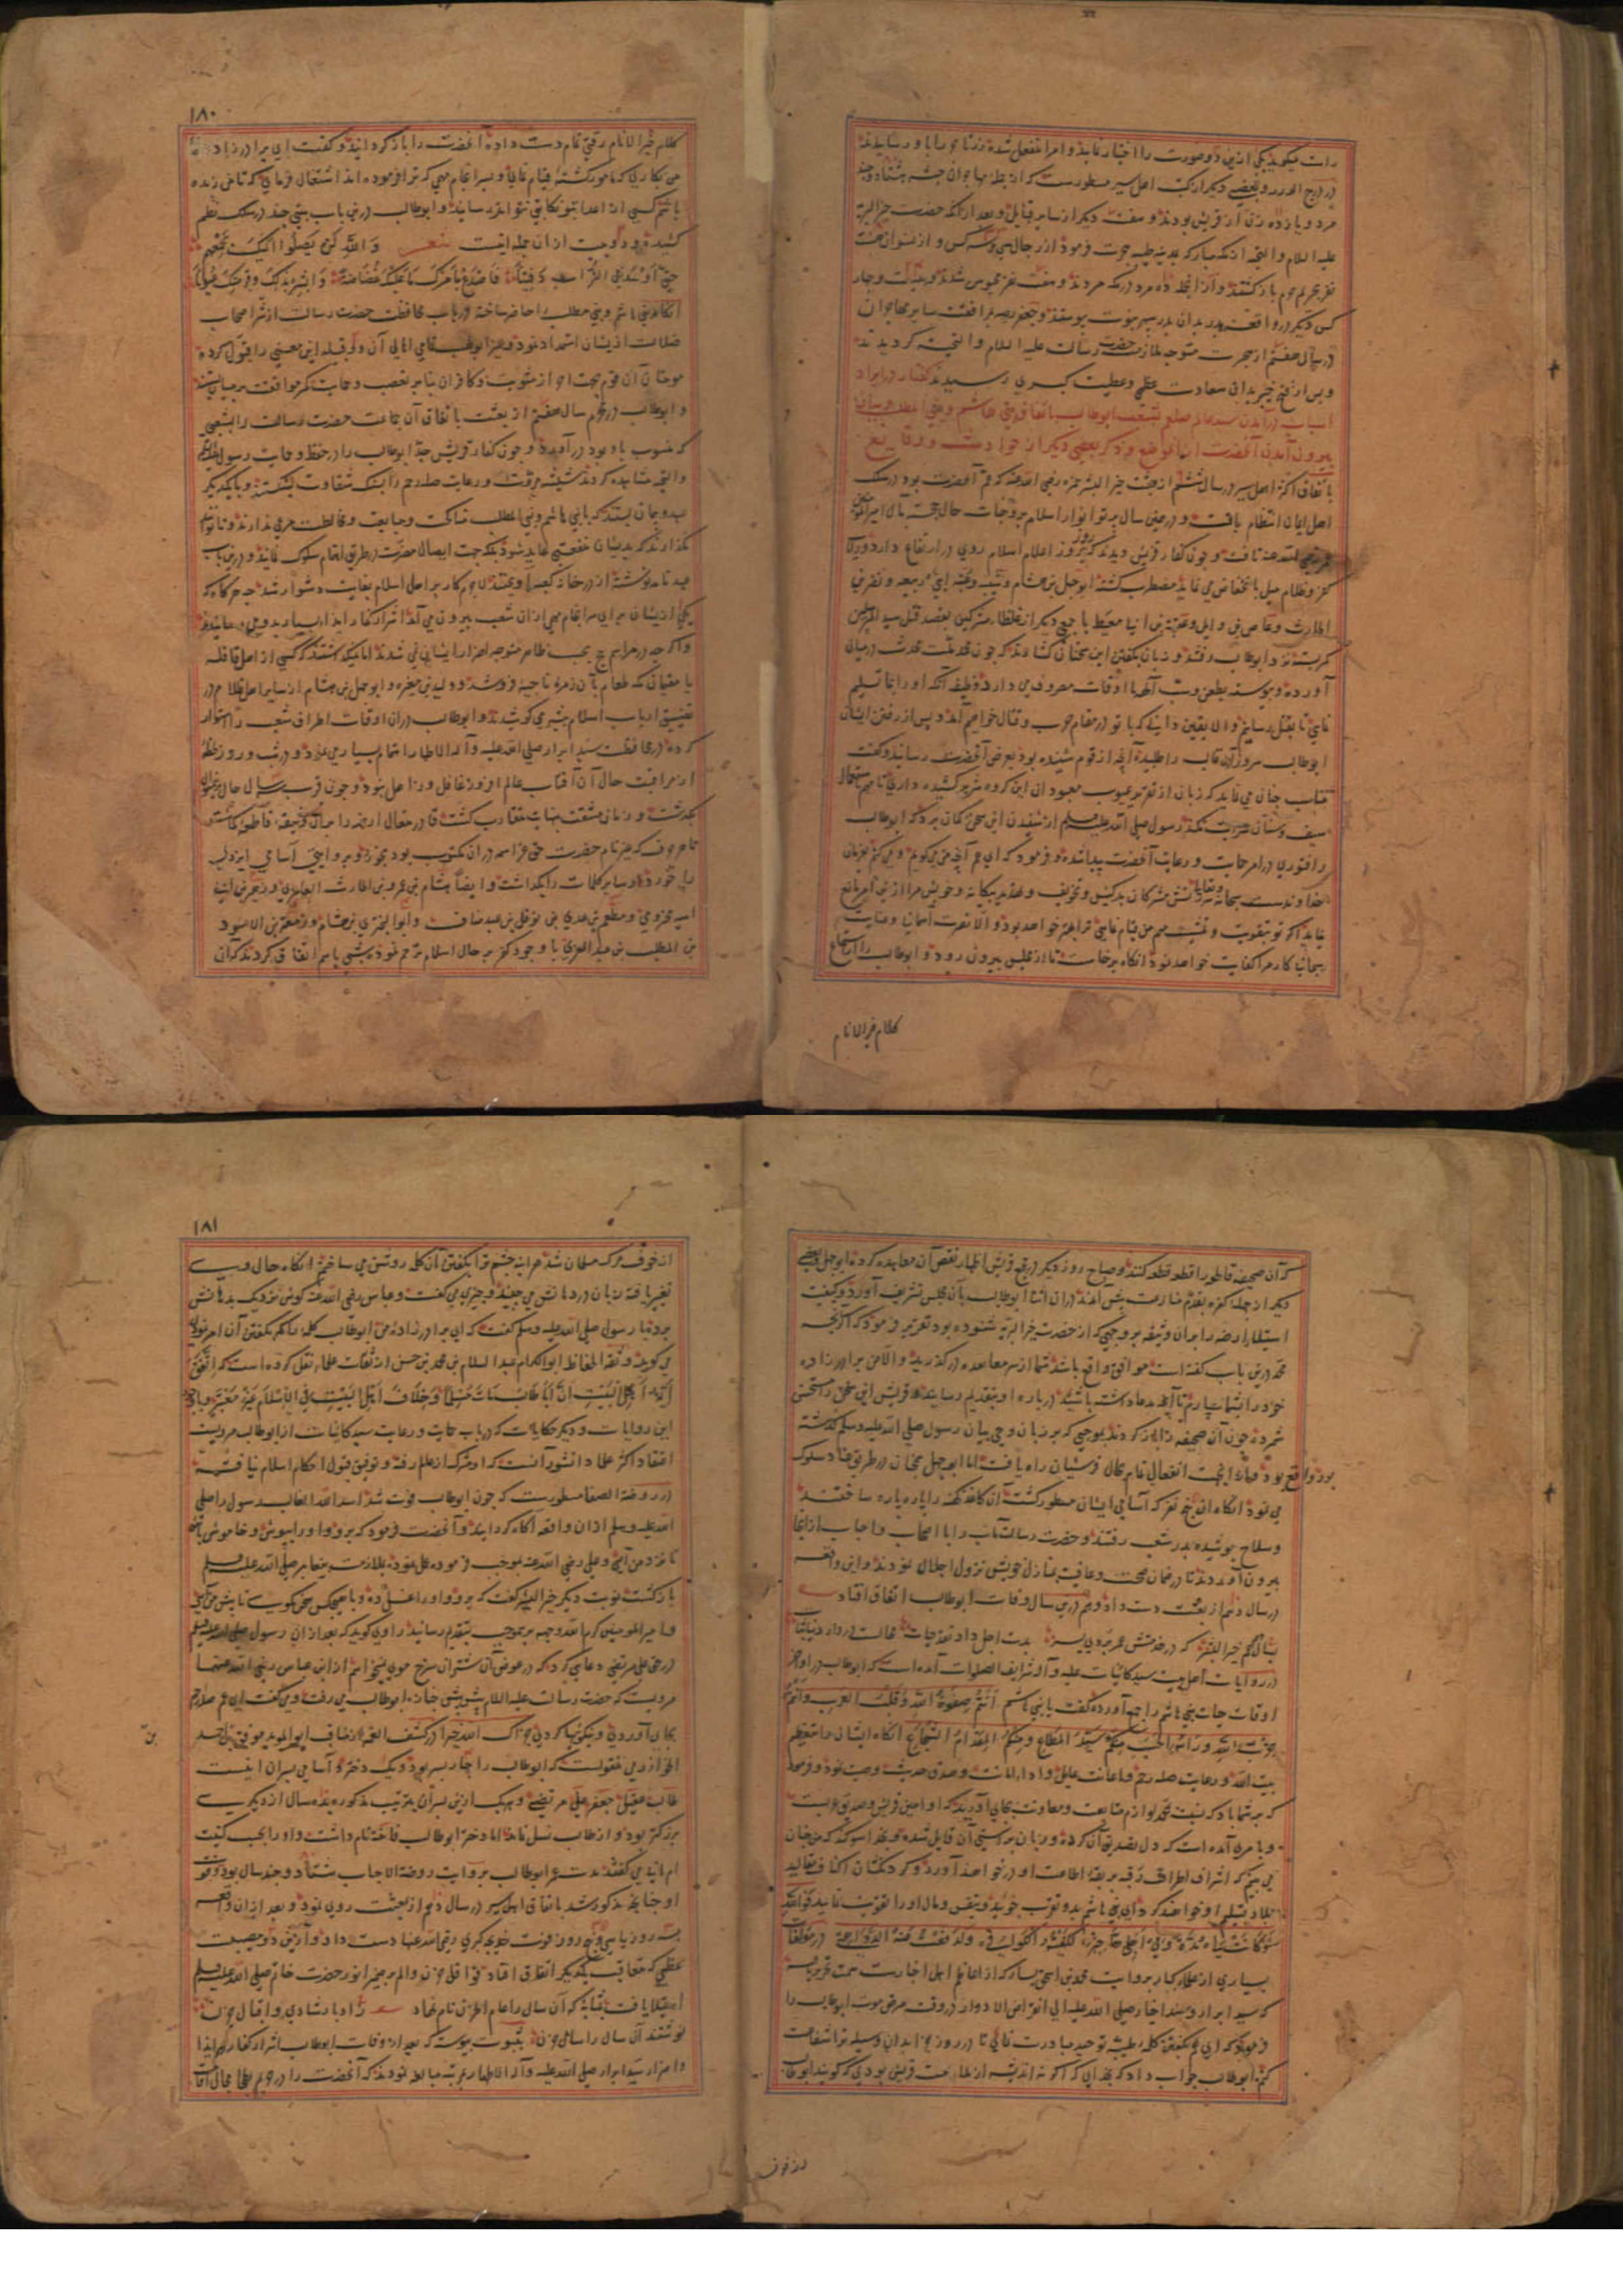 در درج الدرر و بعضی دیگر از کتب اهل سیر مسطورست که از جمله مهاجران حبشه هشتاد و چند
مرد و یازده زن از قریش بودند و هفت دیگر از سایر قبایل و بعد از آنکه حضرت خیر البریه
علیه السلام والتحیه از مکه مبارکه بمدینه طیبه هجرت فرمود از رجال سی و سه کس و از نسوان هشت
کس دیگر در واقعه بدر بدان بدر سپهر نبوت پیوستند و جعفر برافقت سایر مهاجران
در سال هفتم از هجرت متوجه ملازمت حضرت رسالت علیه السلام والتحیه گردیدند
و پس از فتح خیبر بدان سعادت عظمی و عطیت کبری رسیدند گفتار در ایراد
اسباب در آمدن سید عالم صلعم بشعب ابوطالب باتفاق بنی هاشم و بنی المطلب و بیان
بیرون آمدن آنحضرت از آن موضع و ذکر بعضی دیگر از حوادث و وقایع
باتفاق اکثر اهل سیر در سال ششم از بعثت خیر البشر حمزه رضی الله عنه که عم آنحضرت بود در سلک
اهل ایمان انتظام یافت و در همین سال پرتو انوار اسلام بر وجنات حال
کفر و ظلام میل بانخفاض می نماید مضطرب گشته ابوجهل بن هشام و شیبه و عتبه ابنی ربیعه و نضر بن
الحارث و عاص بن وایل و عقبة بن ابی معیط با جمعی دیگر از غلظاء مشرکین بقصد قتل سید المرسلین
کمر بسته نزد ابوطالب رفتند و زبان بگفتن این سخنان گشادند که چون محمد ملت محدث در میان
آورده و پیوسته بطعن و سب آلهه ما اوقات مصروف می دارد وظیفه آنکه او را بما تسلیم
نمایی تا بقتل رسانیم والا یقین دانی که با تو در مقام حرب و قتال خواهیم آمد و پس از رفتن ایشان
ابوطالب سرور آل غالب را طلبیده آنچه از قوم شنیده بود بعرض آنحضرت رسانید و گفت
سیف و سنان سرایت نکند رسول صلی الله علیه وسلم از شنیدن این سخن گمان برد که ابوطالب
را فتوری در امر حمایت و رعایت آنحضرت پیدا شده و فرمود که ای عم آنچه من می گویم و می کنم بفرمان
نماید اگر تو بتقویت و تمشیت مهم من قیام نمایی ترا بهتر خواهد بود والا نصرت آسمانی و عنایت
سبحانی کار مرا کفایت خواهد نمود آنگاه برخاست تا از مجلس بیرون رود و ابوطالب را استماع
کلام خیر الانام
۱۸۰
کلام خیر الانام رقتی تمام دست داده آنحضرت را باز گردانید و گفت ای برادرزاده
می بکاری که مامور گشته قیام نمای و بسرانجام مهمی که ترا فرموده اند اشتغال فرمای که تا من زنده
باشم کسی از اعدا بتو نکایتی نتواند رسانید و ابوطالب درین باب بیتی چند در سلک نظم
کشیده و دو بیت از آن جمله اینست شعر والله لن یصلوا الیک بجمعهم
حتی اوسد فی التراب دفینا فاصدع بامرک ما علیک غضاضة وابشر بذاک وقر منک عیونا
آنگاه بنی هاشم و بنی مطلب را حاضر ساخته در باب محافظت حضرت رسالت از شر اصحاب
ضلالت از ایشان استمداد نمود و غیر ابولهب تمامی اهالی آن دو قبیله این معنی را قبول کرده
مومنان آن قوم بجهت احراز مثوبت و کافران بنابر تعصب و حمایت کمر موافقت بر میان بستند
و ابوطالب در محرم سال هفتم از بعثت باتفاق آن جماعت حضرت رسالت را بشعبی
که منسوب باو بود در آورده و چون کفار قریش جد ابوطالب را در حفظ و حمایت رسول
والتحیه مشاهده کردند شیشه مروت و رعایت صله رحم را بسنگ شقاوت بشکستند و با یکدیگر
عهد و پیمان بستند که با بنی هاشم و بنی المطلب مناکحت و مبایعت و مخالطت مرعی ندارند و تا توانند
نگذارند که بدیشان منفعتی عاید شود بلکه جهت ایصال مضرت در طریق اهتمام سلوک نمایند و درین باب
عهدنامه نوشته از در خانه کعبه آویختند لاجرم کار بر اهل اسلام بغایت دشوار شد چه هرگاه که
یکی از ایشان برای سرانجام مهمی از آن شعب بیرون می آمد اشرار کفار ایذاء بسیار بدو می رسانیدند
واگرچه در مراسم حج بحسب ظاهر متوجه اضرار ایشان نمی شدند اما نمیگذاشتند که کسی از اهل قافله
یا مقیمان مکه طعام بآن زمره ناجیه فروشد و ولید بن مغیره و ابوجهل بن هشام از سایر اهل ظلام در
تضییق ارباب اسلام بیشتر می کوشیدند و ابوطالب در آن اوقات اطراف شعب را استوار
کرده در محافظت سید ابرار صلی الله علیه وآله الاطهار اهتمام بسیار می نمود و در شب و روز
از مراقبت حال آن آفتاب عالم افروز غافل و ذاهل نبود و چون قریب سه سال حال
بگذشت و زمان مشقت بنهایت متقارب گشت قادر متعال ارضه را بر آن وثیقه قاطعه گماشت
تا حروف که غیر نام حضرت حق عز اسمه در آن مکتوب بود بخورد و بروایتی اسامی ایزدی
را خورده سایر کلمات را بگذاشت و ایضا هشام بن عمرو بن الحارث العامری و زهیر بن ابی
امیه مخزومی و مطعم بن عدی بن نوفل بن عبد مناف و ابوالبختری بن هشام و زمعة بن الاسود
بن المطلب بن عبد العزی با وجود کفر بر حال اسلام ترحم نموده شبی باهم اتفاق کردند که آن
که آن صحیفه قاطعه را قطعه قطعه کنند و صباح روز دیگر در مجمع قریش اظهار نقض آن معاهده کرده ابوجهل و بعضی
دیگر از جمله کفره بقدم ممانعت پیش آمدند در آن اثنا ابوطالب بآن مجلس تشریف آورد و کیفیت
استیلاء ارضه را بر آن وثیقه بر وجهی که از حضرت خیر البریه شنوده بود تقریر فرمود که اگر آنچه
محمد درین باب گفته است موافق واقع باشد شما از سر معاهده در گذرید والا من برادرزاده
خود را بشما سپارم تا آنچه مدعا داشته باشید درباره او بتقدیم رسانید و قریش این سخن را مستحسن
شمرده چون آن صحیفه را باز کردند بوجهی که بر زبان وحی بیان رسول صلی الله علیه وسلم گذشته
بود واقع بود
می نمود آنگاه آن پنج نفر که اسامی ایشان مسطور گشت آن کاغذ کهنه را پاره پاره ساختند
و سلاح پوشیده بدر شعب رفتند و حضرت رسالت مآب را با اصحاب و احباب از آنجا
بیرون آوردند تا در ضمان صحت و عافیت بمنازل خویش نزول اجلال نمودند و این واقعه
در سال دهم از بعثت دست داد و هم درین سال وفات ابوطالب اتفاق افتاد
در روایات اهل بیت سید کائنات علیه وآله شرایف الصلوات آمده است که ابوطالب در اواخر
اوقات حیات بنی هاشم را جمع آورده گفت یا بنی هاشم انتم صفوة الله وقلب العرب وانتم
بیت الله و رعایت صله رحم و اعانت سایل و اداء امانت و صدق حدیث وصیت نمود و فرمود
که بر شما باد که نسبت بمحمد لوازم متابعت و معاونت بجای آورید که او امین قریش و صدیق عربست
و بامری آمده است که دل تصدیق آن کرده و زبان براستی آن قایل شده و بخدا سوگند که من چنان
می بینم که اشراف اطراف رقبه بربقه اطاعت او در خواهند آورد
بسیاری از علماء کبار بروایت محمد بن اسحق یسار که از اعاظم اهل اخبارست سمت تحریر یافته
که سید ابرار و سند اخیار صلی الله علیه الی انقراض الادوار در وقت مرض موت ابوطالب را
فرمود که ای عم بگفتن کلمه طیبه توحید مبادرت نمای تا در روز جزا بدان وسیله ترا شفاعت
کنم ابوطالب جواب داد که بخدایی که اگر نه اندیشه از ملامت قریش بودی که گویند ابوطالب
از خوف
۱۸۱
از خوف مرگ مسلمان شد هرآینه چشم ترا بگفتن آن کلمه روشن می ساختم آنگاه حال وی
تغییر یافته زبان در دهانش می جنبید و چیزی می گفت و عباس رضی الله عنه گوش نزدیک بدهانش
برد و با رسول صلی الله علیه وسلم گفت که ای برادرزاده من ابوطالب کلمه را که بگفتن آن امر نمودی
می گوید و ثقة الحفاظ ابوالکرام عبد السلام بن محمد بن حسن از ثقات علماء نقل کرده است که اتفق
ائمة اهل البیت ان ابا طالب مات مسلما وخلاف اهل البیت فی الاسلام غیر معتبر و با وجود
این روایات و دیگر حکایات که در باب حمایت و رعایت سید کائنات از ابوطالب مرویست
اعتقاد اکثر علماء دانشور آنست که او مشرک از عالم رفته و توفیق قبول احکام اسلام نیافته
در روضة الصفا مسطورست که چون ابوطالب فوت شد اسد الله الغالب رسول را صلی
الله علیه وسلم از آن واقعه آگاه گردانید و آنحضرت فرمود که برو و او را بپوش و خاموش باش
تا نزد من آیی و علی رضی الله عنه بموجب فرموده عمل نموده بملازمت پیغامبر صلی الله علیه وسلم
بازگشت نوبت دیگر خیر البشر گفت که برو و او را غسل ده و با هیچکس سخن مگوی تا پیش من آیی
و امیر المومنین کرم الله وجهه بر موجب بتقدیم رسانید راوی گوید که بعد از آن رسول صلی الله علیه وسلم
در حق علی مرتضی دعایی کرد که در عوض آن شتران سرخ موی نمیخواهم از ابن عباس رضی الله عنهما
مرویست که حضرت رسالت علیه السلام پیش پیش جنازه ابوطالب می رفت و می گفت ای عم صله رحم
بجای آوردی و نیکوییها کردی جزاک الله خیرا در کشف الغمه از مناقب ابو الموید موفق بن احمد
الخوارزمی منقولست که ابوطالب را چهار پسر بود و یک دختر و اسامی پسران اینست
طالب عقیل جعفر علی مرتضی و هر یک ازین پسران بترتیب مذکور بده سال از دیگری
بزرگتر بود و از طالب نسل نماند اما دختر ابوطالب فاخته نام داشت و او را بحسب کنیت
ام هانی می گفتند مدت عمر ابوطالب بروایت روضة الاحباب هشتاد و چند سال بود و فوت
او چنانچه مذکور شد باتفاق اهل سیر در سال دهم از بعثت روی نمود و بعد از آن واقعه
بسه روز یا سی و پنج روز فوت خدیجه کبری رضی الله عنها دست داد و ازین دو مصیبت
عظمی که متعاقب یکدیگر اتفاق افتاد قوافل حزن و الم بر ضمیر انور حضرت خاتم صلی الله علیه وسلم
استیلا یافت بمثابه که آن سال را عام الحزن نام نهاد
نوشتند آن سال را سال حزن بثبوت پیوسته که بعد از وفات ابوطالب اشرار کفار در ایذا
و اضرار سید ابرار صلی الله علیه وآله الاطهار بمرتبه مبالغه نمودند که آنحضرت را در حرم بطحا مجال اقامت